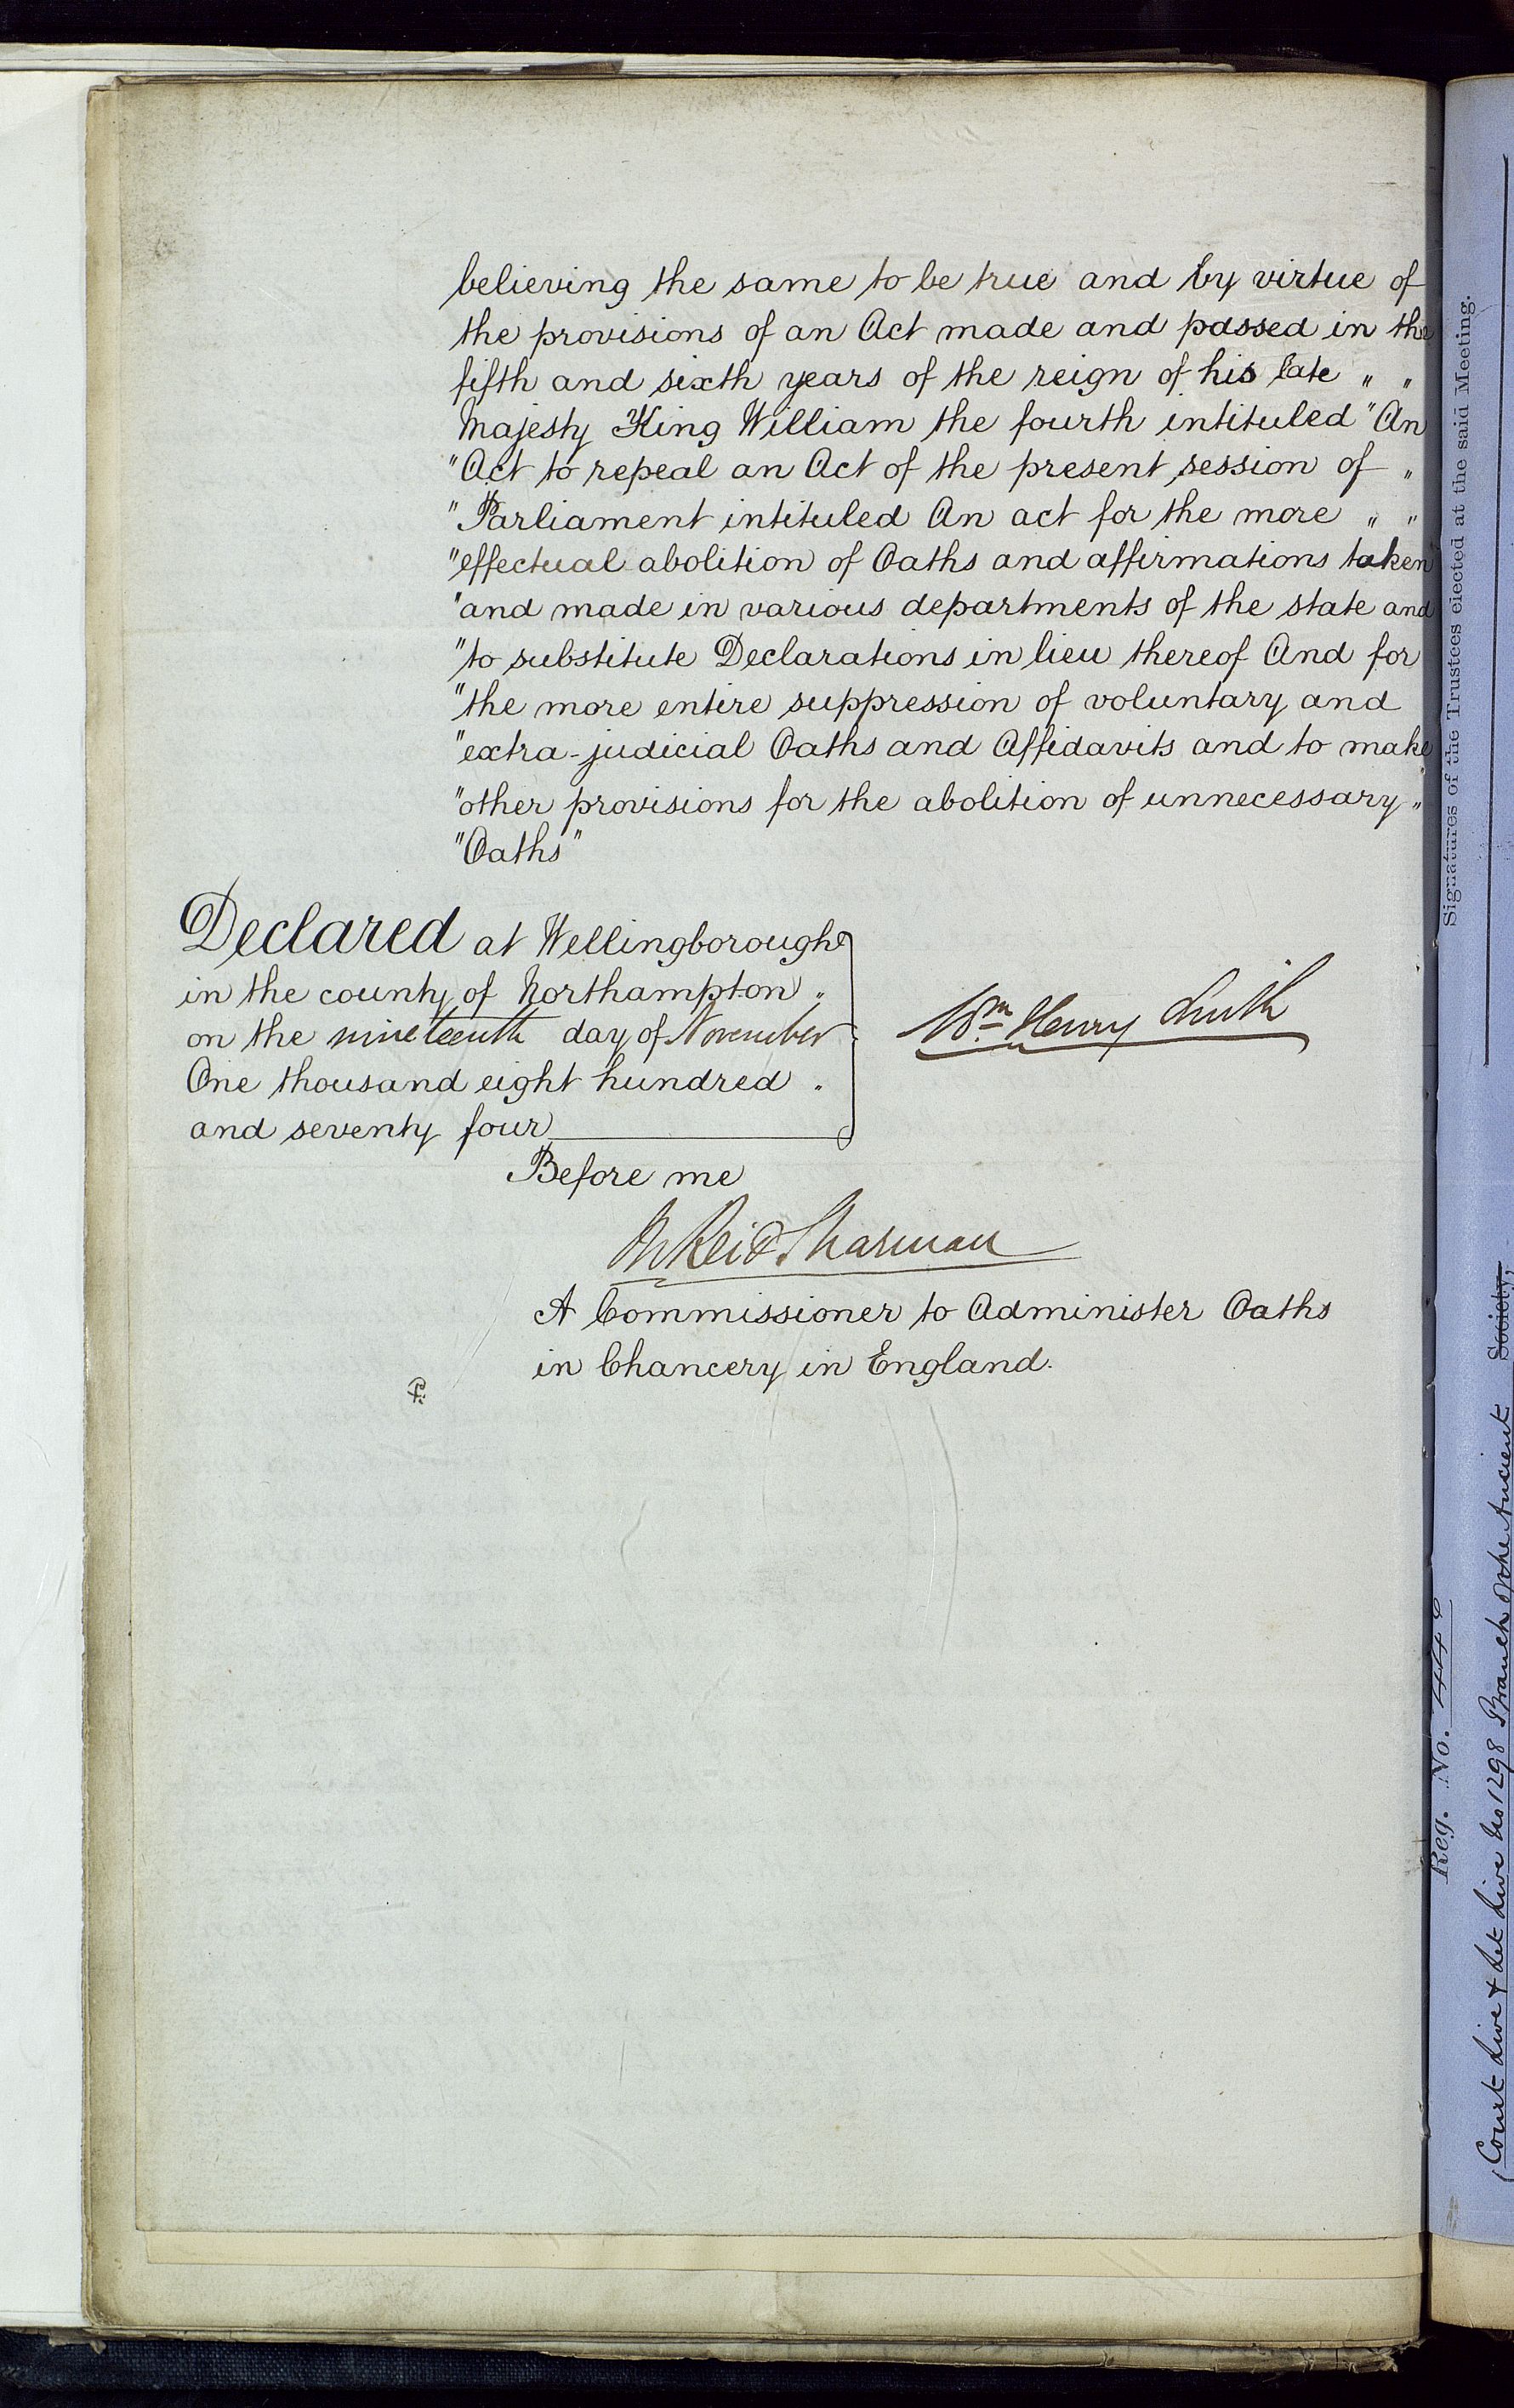 believing the same to be true and by virtue of
the provisions of an Act made and passed in the
fifth and sixth years of the reign of his late " "
Majesty King William the fourth intituled "An
"Act to repeal an Act of the present session of "
"Parliament intituled An act for the more " "
"effectual abolition of Oaths and affirmations taken
"and made in various departments of the state and
"to substitute Declarations in lieu thereof And for
"the more entire suppression of voluntary and
"extra-judicial Oaths and Affidavits and to make
"other provisions for the abolition of unnecessary "
"Oaths"
Declared at Wellingborough
in the county of Northampton "
on the nineteenth day of November
One thousand eight hundred "
and seventy four
Wm Henry Smith
Before me
Reid Sharman
A Commissioner to Administer Oaths
in Chancery in England.
Signatures of the Trustees elected at the said Meeting.
Reg. No.
Court Live & Let Live No 1298 Branch of the Ancient
Society,